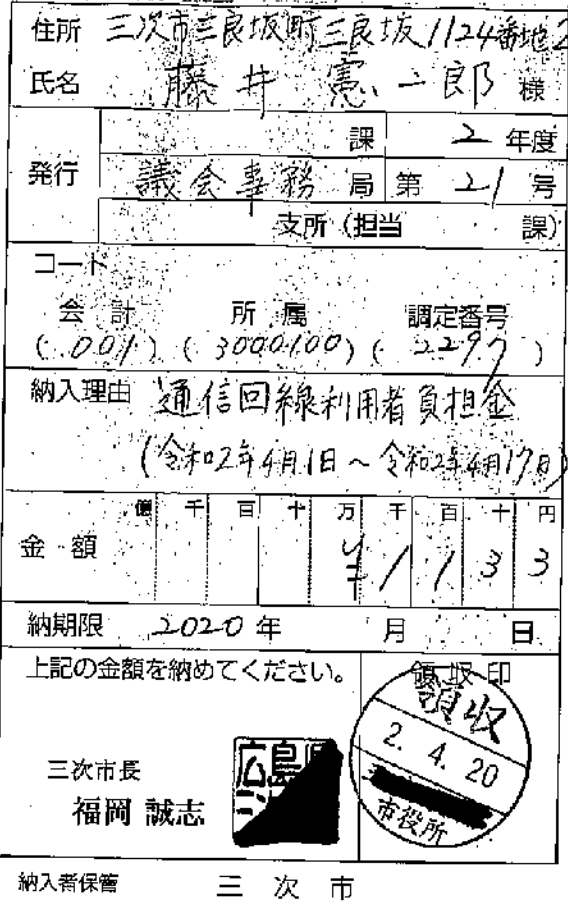 住所 三次市三良坂町三良坂1124番地2
氏名 藤井 憲二郎 様
発行
課 2 年度
議会事務 局 第 21 号
支所 (担当 課)
コード
会計 所属 調定番号
(001) (3000100) (2297)
納入理由 通信回線利用者負担金
(令和2年4月1日～令和2年4月17日)
億 千 百 十 万 千 百 十 円
金額 ¥1133
納期限 2020年 月 日
上記の金額を納めてください。
領収印
領収
2. 4. 20
市役所
三次市長
福岡 誠志
広島県
納入者保管 三次市